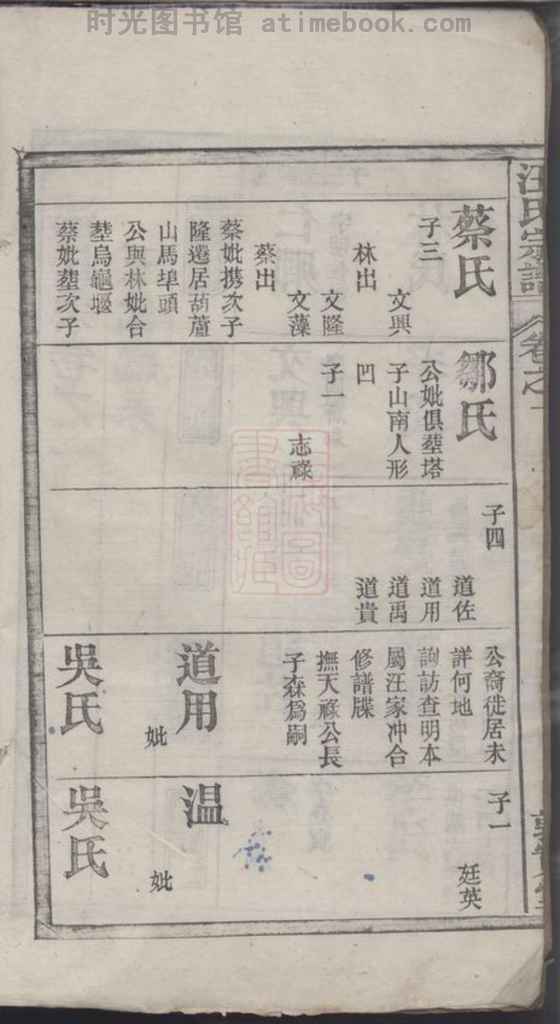 时光图书馆 atimebook.com
汪氏宗譜
卷之一
蔡氏
子三
文興
林出
文隆
文藻
蔡出
蔡妣携次子
隆遷居葫蘆
山馬埠頭
公與林妣合
塟烏龜堰
蔡妣塟次子
鄒氏
公妣俱塟塔
子山南人形
凹
子一
志祿
子四
道佐
道用
道禹
道貴
公裔徙居未
詳何地
詢訪查明本
屬汪家冲合
修譜牒
撫天祿公長
子森為嗣
道用
妣
吳氏
子一
廷英
温
妣
吳氏